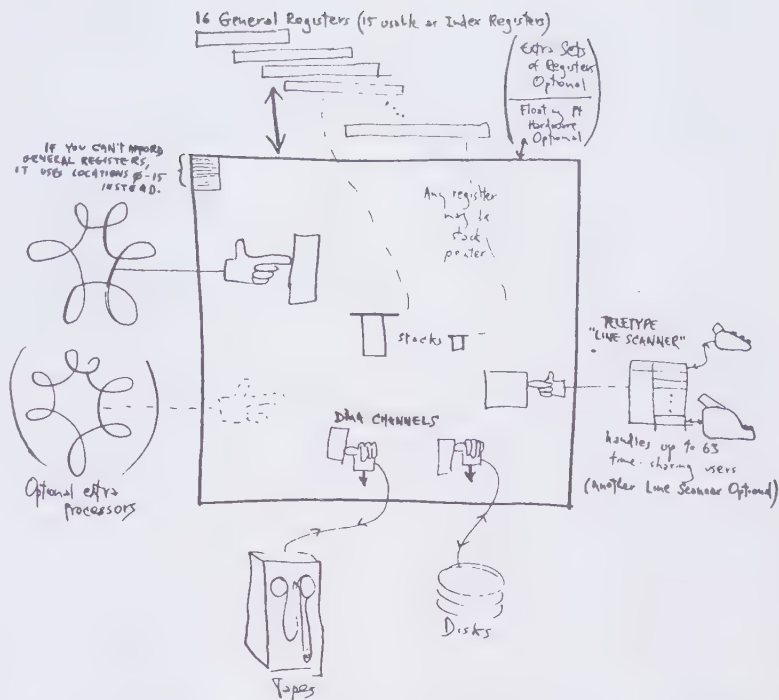 16 General Registers (15 usable as Index Registers)
(Extra Sets
of Registers
Optional
Floating Pt
Hardware
Optional)
IF YOU CAN'T AFFORD
GENERAL REGISTERS,
IT USES LOCATIONS Ø-15
INSTEAD.
Any register
may be
stack
pointer
stacks
TELETYPE
"LINE SCANNER"
handles up to 63
time-sharing users
(Another Line Scanner Optional)
DMA CHANNELS
Optional extra
processors
Tapes
Disks